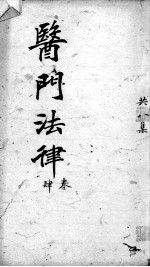 共八集
醫門法律
叁
肆